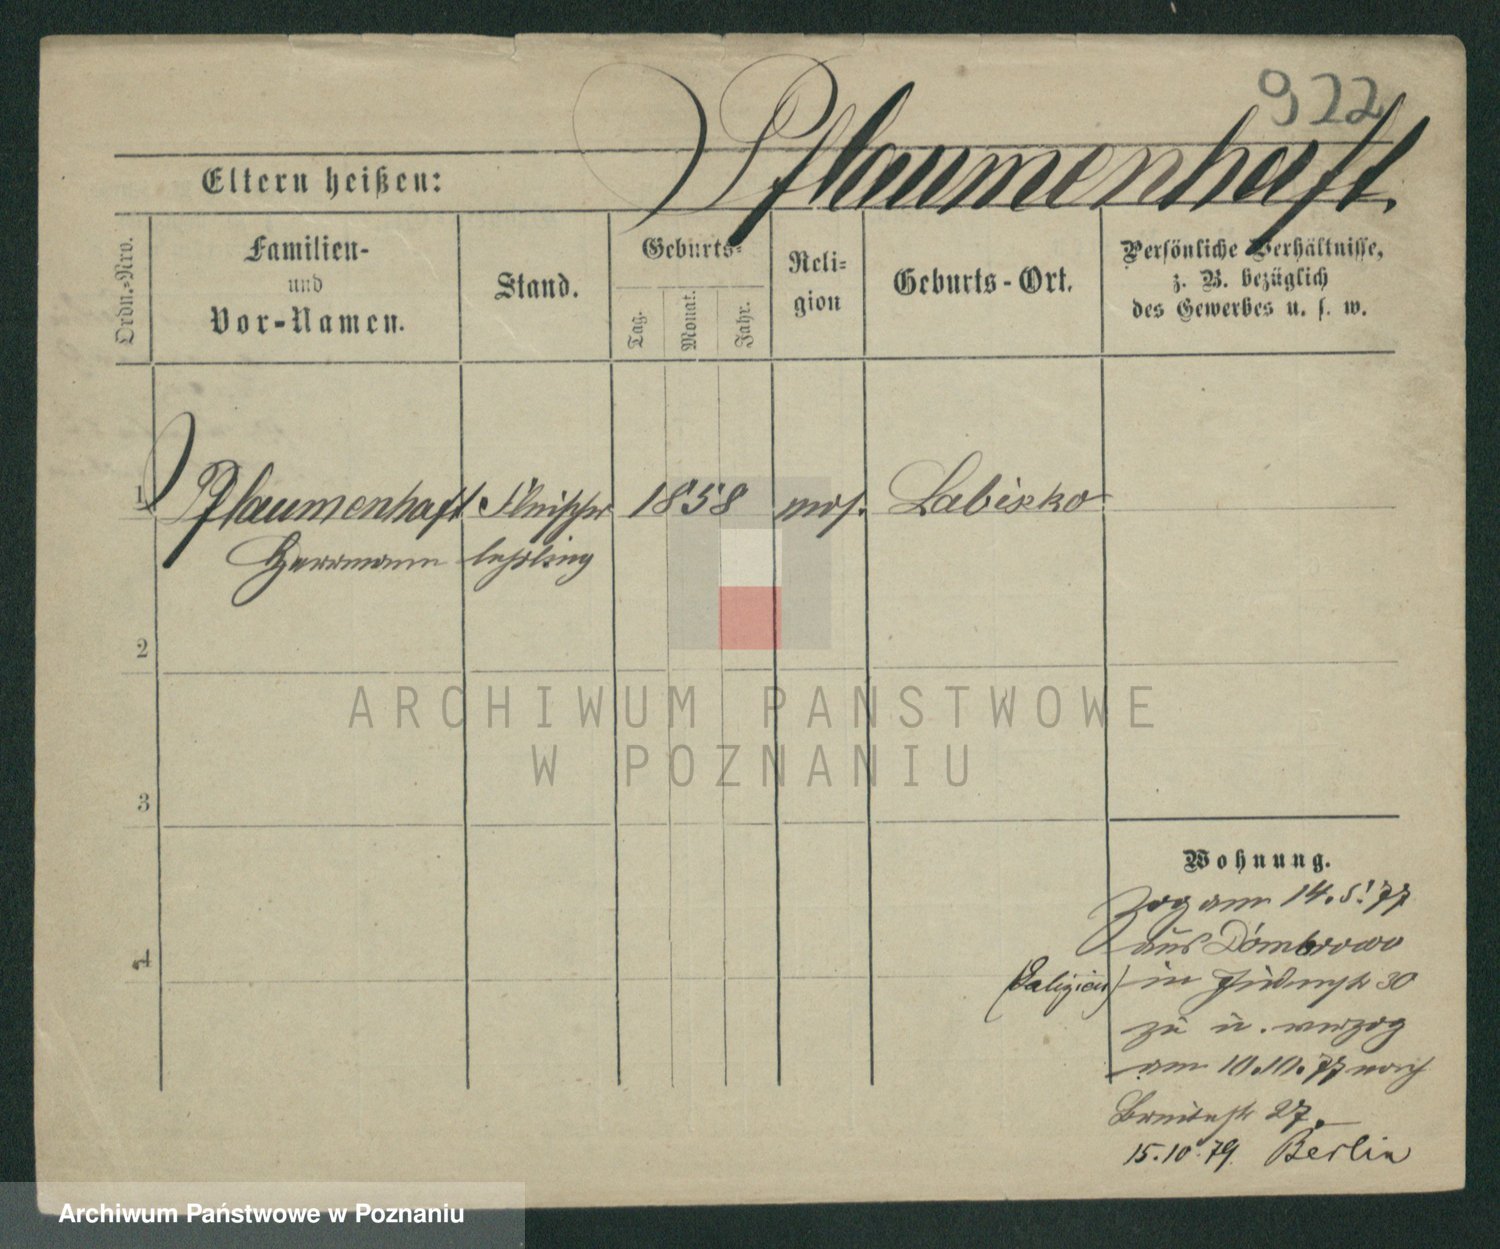 922
Pflaumenhaft.
Eltern heißen:
Ordn.-Nro.
Familien-
und
Vor-Namen.
Stand.
Geburts-
Tag.
Monat.
Jahr.
Reli-
gion
Geburts-Ort.
Persönliche Verhältnisse,
z. B. bezüglich
des Gewerbes u. s. w.
1 Pflaumenhaft Fleischer 1858 mos. Labisko
Herrmann lehrling
2
ARCHIWUM PAŃSTWOWE
W POZNANIU
3
Wohnung.
Zog am 14.5.77
aus Dombrowo
4
(Galizien) in Judenstr 30
zu u. verzog
am 10.10.77 nach
Breitestr 27.
15.10.79 Berlin
Archiwum Państwowe w Poznaniu